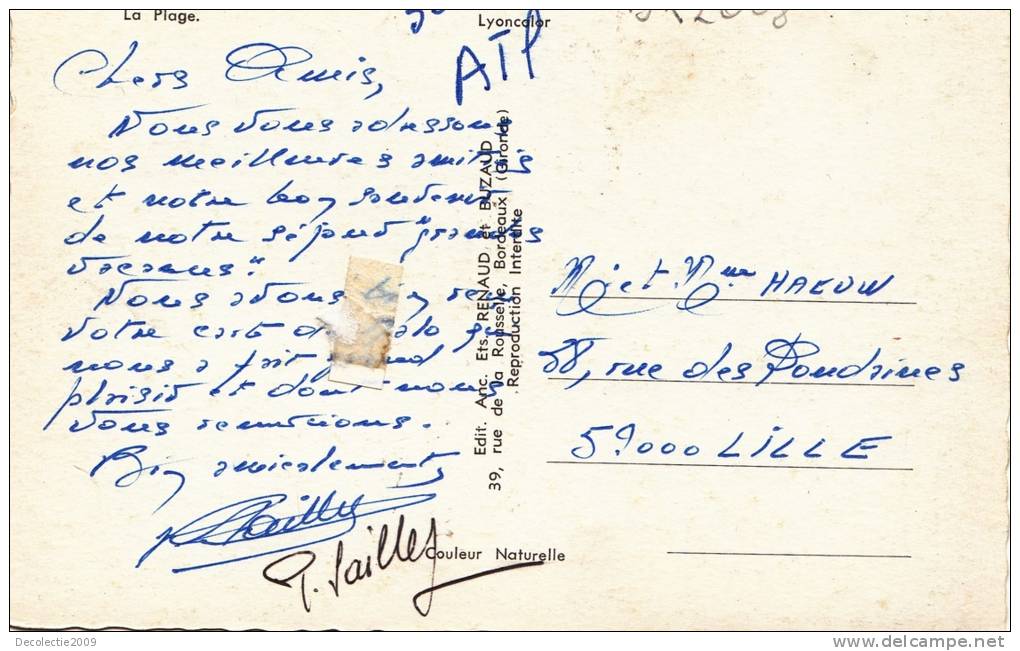 La Plage.
Lyoncolor
ATP
Chers Amis,
Nous vous adressons
nos meilleures amitiés
et notre bon souvenir
de notre séjour "grandes
vacances".
Nous avons bien reçu
votre carte qui
nous a fait grand
plaisir et dont nous
vous remercions.
Bien amicalement
P. Sailley
Edit. Anc. Ets. RENAUD et BUZAUD
39, rue de la Rousselle, Bordeaux (Gironde)
Reproduction Interdite
Couleur Naturelle
Mr et Mme HAKUN
58, rue des Pondrines
59000 LILLE
Decolectie2009
www.delcampe.net